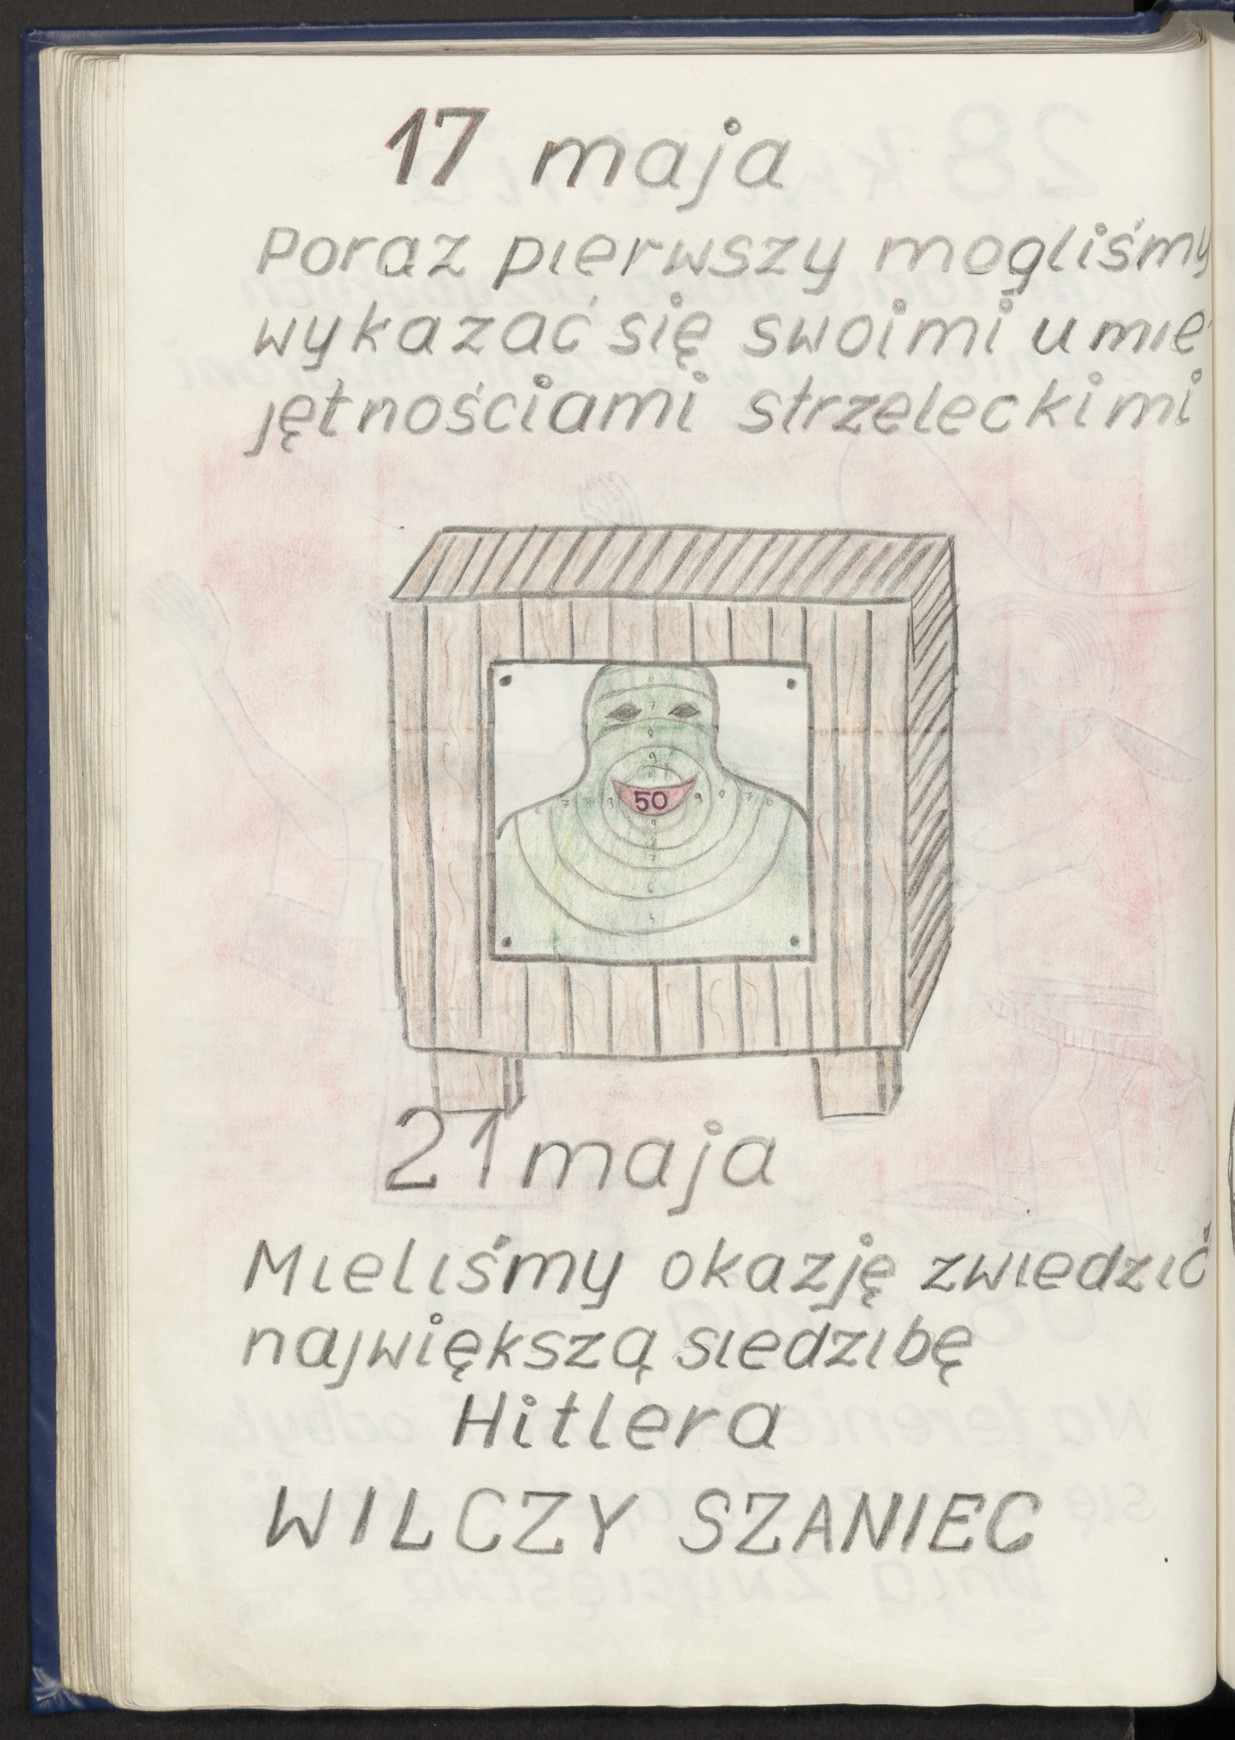 17 maja
Poraz pierwszy mogliśmy
wykazać się swoimi umie
jętnościami strzeleckimi
50
21 maja
Mieliśmy okazję zwiedzić
największą siedzibę
Hitlera
WILCZY SZANIEC